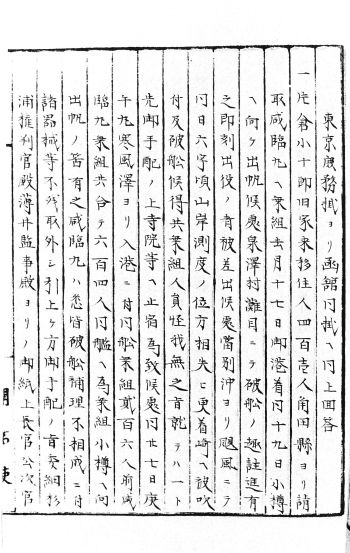 東京庶務掛ヨリ函館同掛ヘ同上回答
一片倉小十郎旧家来移住人四百壱人角田縣ヨリ請
取咸臨丸ヘ乗組去月十七日御港着同十九日小樽
ヘ向ケ出帆候處泉澤村灘目ニテ破船ノ趣註進有
之即刻出役ノ者被差出候處當別沖ヨリ颶風ニテ
同日六字頃山岸測度ノ位方相失ヒ更着崎ヘ被吹
付及破船候得共乗組人員怪我無之旨就テハ一ト
先御手配ノ上寺院等ヘ止宿為致候處同廿七日庚
午丸寒風澤ヨリ入港ニ付同船乗組貳百六人前咸
臨丸乗組共合テ六百四人同艦ヘ為乗組小樽ヘ向
出帆ノ旨有之咸臨丸ハ悉皆破船補理不相成ニ付
諸器械等不残取外シ引上ケ方御手配ノ旨委細杉
浦権判官殿薄井監事殿ヨリノ御紙上長官公次官
開拓使